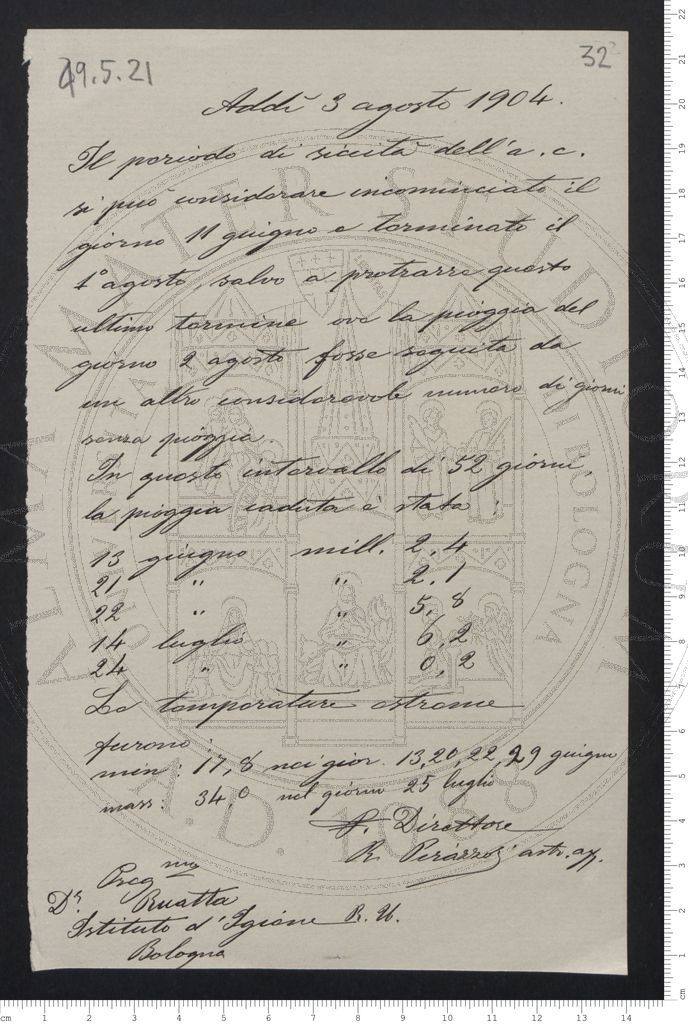 32
49.5.21
Addì 3 agosto 1904.
Il periodo di siccità dell'a. c.
si può considerare incominciato il
giorno 11 giugno e terminato il
1° agosto, salvo a protrarre questo
ultimo termine ove la pioggia del
giorno 2 agosto fosse seguita da
un altro considerevole numero di giorni
senza pioggia.
In questo intervallo di 52 giorni,
la pioggia caduta è stata:
13 giugno mill. 2,4
21 " " 2,1
22 " " 5,8
14 luglio " 6,2
24 " " 0,2
Le temperature estreme
furono:
min: 17,8 nei gior. 13,20,22,29 giugno
mass: 34,0 nel giorno 25 luglio
p. Direttore
R. Pirazzoli astr. ag.
Preg mo
Dr. Ruatta
Istituto d'Igiene R. U.
Bologna
ALMA MATER STUDIORUM
A.D. 1088